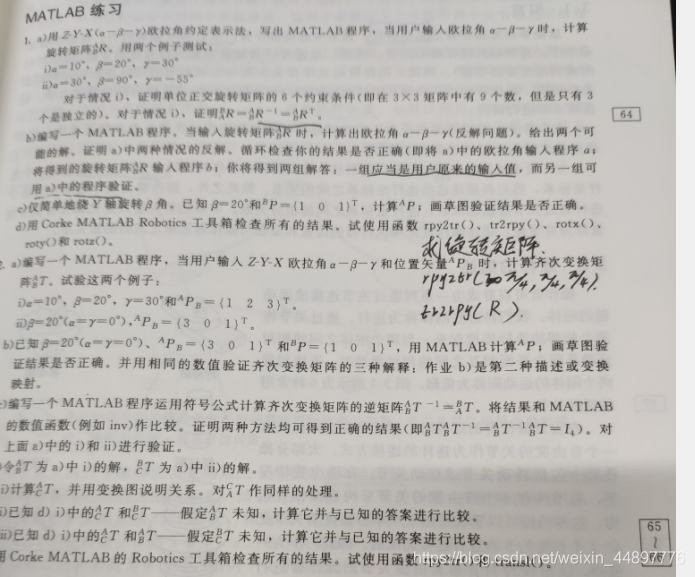 MATLAB 练习
1. a)用 Z-Y-X(α-β-γ)欧拉角约定表示法,写出 MATLAB 程序,当用户输入欧拉角 α-β-γ 时,计算
旋转矩阵ᴬ_BR。用两个例子测试:
i)α=10°,β=20°,γ=30°
ii)α=30°,β=90°,γ=-55°
对于情况 i),证明单位正交旋转矩阵的 6 个约束条件(即在 3×3 矩阵中有 9 个数,但是只有 3
个是独立的)。对于情况 i),证明ᴮ_AR=ᴬ_BR⁻¹=ᴬ_BRᵀ。
64
b)编写一个 MATLAB 程序。当输入旋转矩阵ᴬ_BR 时,计算出欧拉角 α-β-γ(反解问题)。给出两个可
能的解。证明 a)中两种情况的反解。循环检查你的结果是否正确(即将 a)中的欧拉角输入程序 a;
将得到的旋转矩阵ᴬ_BR 输入程序 b;你将得到两组解答:一组应当是用户原来的输入值,而另一组可
用 a)中的程序验证。
c)仅简单地绕 Y 轴旋转 β 角。已知 β=20°和ᴮP={1 0 1}ᵀ,计算ᴬP;画草图验证结果是否正确。
d)用 Corke MATLAB Robotics 工具箱检查所有的结果。试使用函数 rpy2tr()、tr2rpy()、rotx()、
roty()和 rotz()。
求旋转矩阵
2. a)编写一个 MATLAB 程序,当用户输入 Z-Y-X 欧拉角 α-β-γ 和位置矢量ᴬP_B 时,计算齐次变换矩
阵ᴬ_BT。试验这两个例子:
i)α=10°,β=20°,γ=30°和ᴬP_B={1 2 3}ᵀ。
π/4, π/4).
ii)β=20°(α=γ=0°),ᴬP_B={3 0 1}ᵀ。
tr2rpy(R).
b)已知 β=20°(α=γ=0°)、ᴬP_B={3 0 1}ᵀ和ᴮP={1 0 1}ᵀ,用 MATLAB 计算ᴬP;画草图验
证结果是否正确。并用相同的数值验证齐次变换矩阵的三种解释:作业 b)是第二种描述或变换
映射。
c)编写一个 MATLAB 程序运用符号公式计算齐次变换矩阵的逆矩阵ᴬ_BT⁻¹=ᴮ_AT。将结果和 MATLAB
的数值函数(例如 inv)作比较。证明两种方法均可得到正确的结果(即ᴬ_BTᴬ_BT⁻¹=ᴬ_BT⁻¹ᴬ_BT=I₄)。对
上面 a)中的 i)和 ii)进行验证。
令ᴬ_BT 为 a)中 i)的解,ᴮ_CT 为 a)中 ii)的解。
i)计算ᴬ_CT,并用变换图说明关系。对ᶜ_AT 作同样的处理。
ii)已知 d) i)中的ᴬ_CT 和ᴮ_CT——假定ᴬ_BT 未知,计算它并与已知的答案进行比较。
iii)已知 d) i)中的ᴬ_CT 和ᴬ_BT——假定ᴮ_CT 未知,计算它并与已知的答案进行比较。
用 Corke MATLAB 的 Robotics 工具箱检查所有的结果。试使用函数
65
https://blog.csdn.net/weixin_44897776